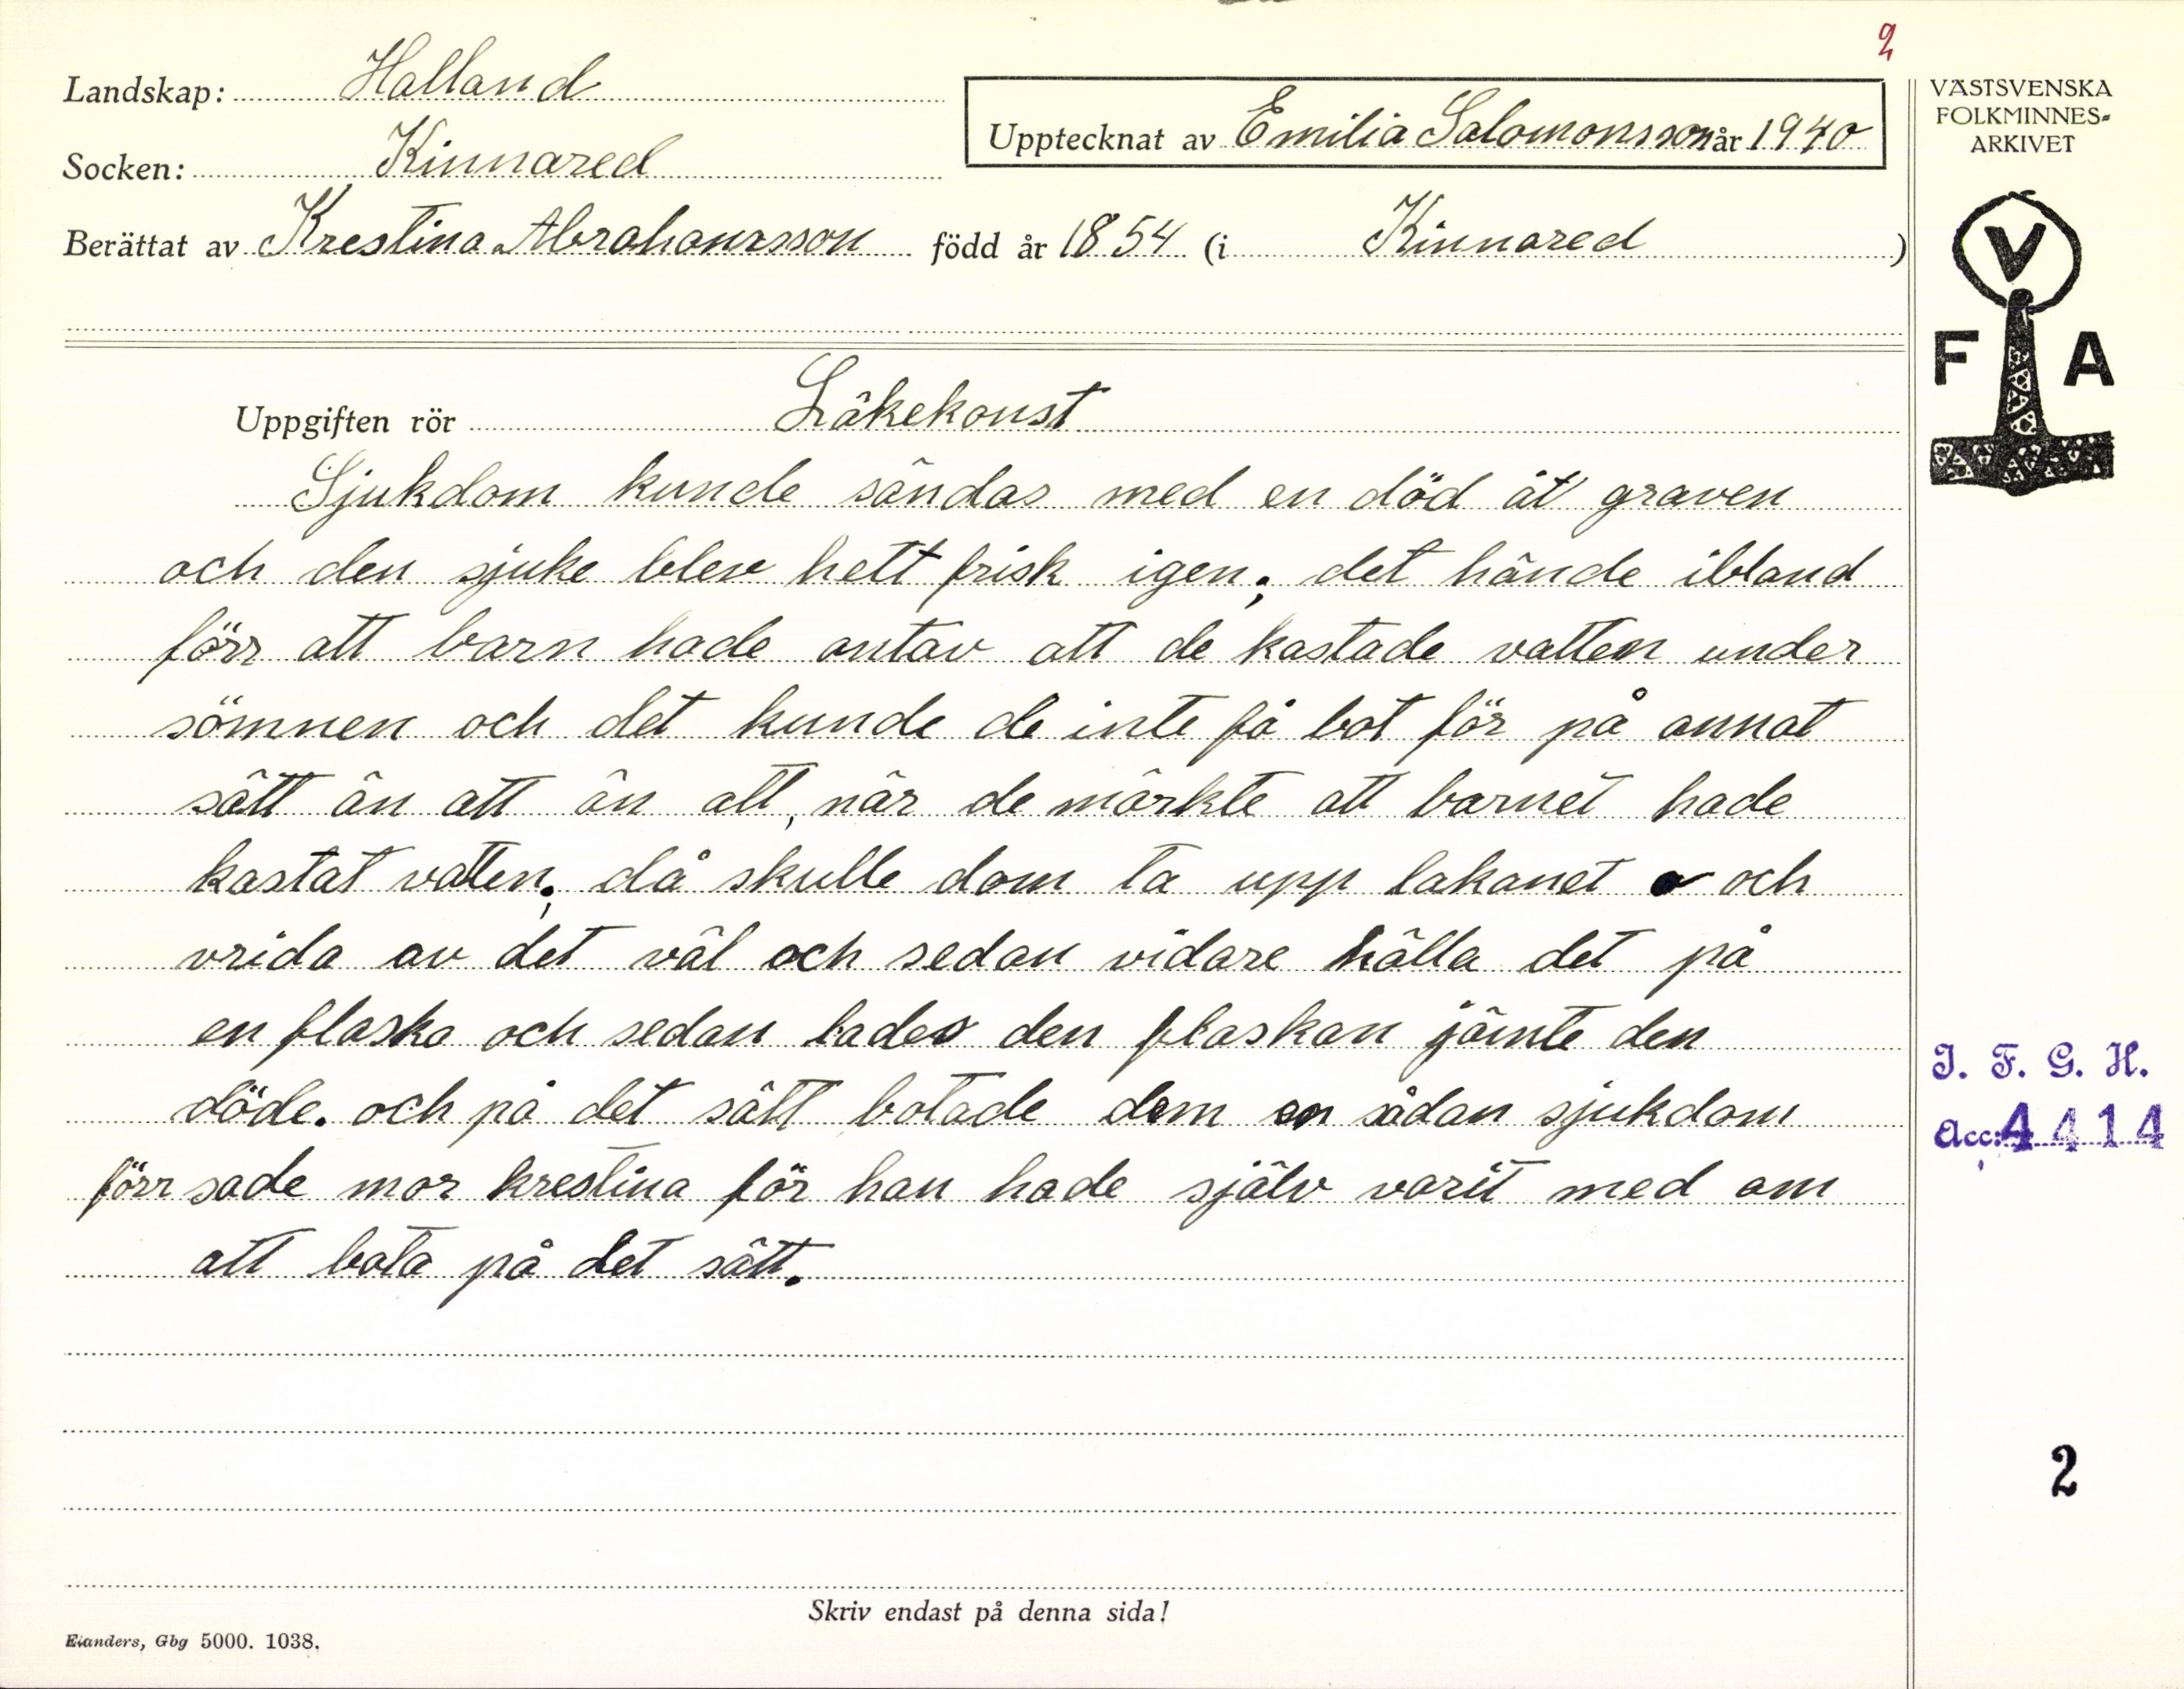 2
Landskap: Halland
Upptecknat av Emilia Salomonsson år 1940
Socken: Kinnared
Berättat av Krestina Abrahamsson född år 1854 (i Kinnared)
VÄSTSVENSKA
FOLKMINNES-
ARKIVET
V
F A
Uppgiften rör Läkekonst
Sjukdom kunde sändas med en död åt graven
och den sjuke blev helt frisk igen; det hände ibland
förr att barn hade antav att de kastade vatten under
sömnen och det kunde de inte få bot för på annat
sätt än att än att, när de märkte att barnet hade
kastat vatten; då skulle dom ta upp lakanet och
vrida av det väl och sedan vidare hälla det på
en flaska och sedan lades den flaskan jämte den
döde. och på det sätt botade dem en sådan sjukdom
förr sade mor krestina för han hade själv varit med om
att bota på det sätt.
I. F. G. H.
Acc: 4414
2
Skriv endast på denna sida!
Elanders, Gbg 5000. 1038.